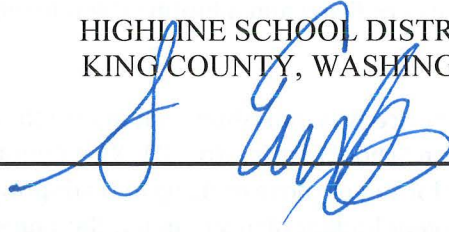 HIGHLINE SCHOOL DISTR
KING COUNTY, WASHING